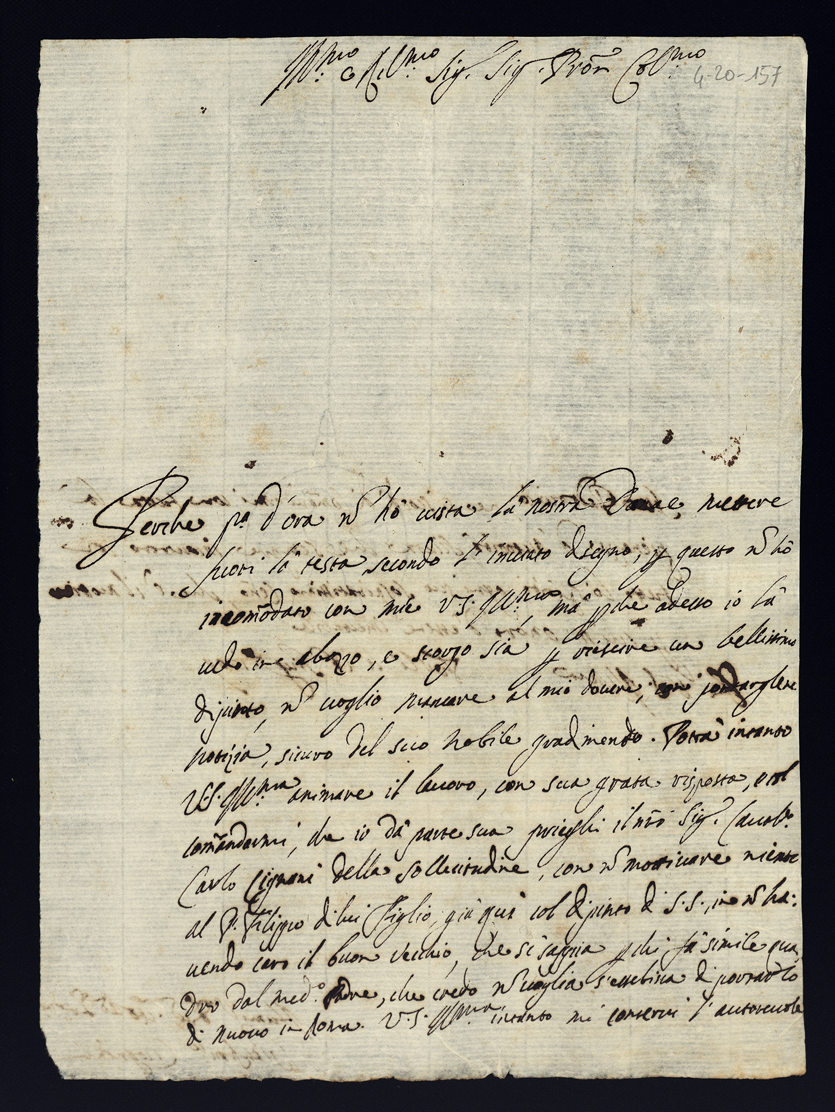 Ill.mo e Rev.mo Sig.r Sig.r Pron Col.mo
4-20-157
Perche p.a d'ora nõ hò vista la nostra Danae mettere
fuori la testa secondo l'inviato disegno, p questo nõ hò
incomõdato con mie V.S. Ill.ma, ma pche adesso io la
vedo in abozo, e scorgo sia p riescire un bellissimo
dipinto, nõ voglio mancare al mio dovere, con portarglene
notizia, sicuro del suo nobile gradimento. Potrà intanto
V.S. Ill.ma animare il lavoro, con sua grata risposta, e col
comãndarmi, che io da parte sua prieghi il nrõ Sig.r Caval.re
Carlo Cignani della sollecitudine, con nõ motivare niente
al S. Filippo di lui figlio, già qui col dipinto di S.S., in nõ ha:
vendo caro il buon vecchio, che si sappia pchi fà simile qua
dro dal med.o Padre, che credo nõ voglia s'essebisca di portarlo
di nuovo in Roma. V.S. Ill.ma intanto mi conservi l'autorevole